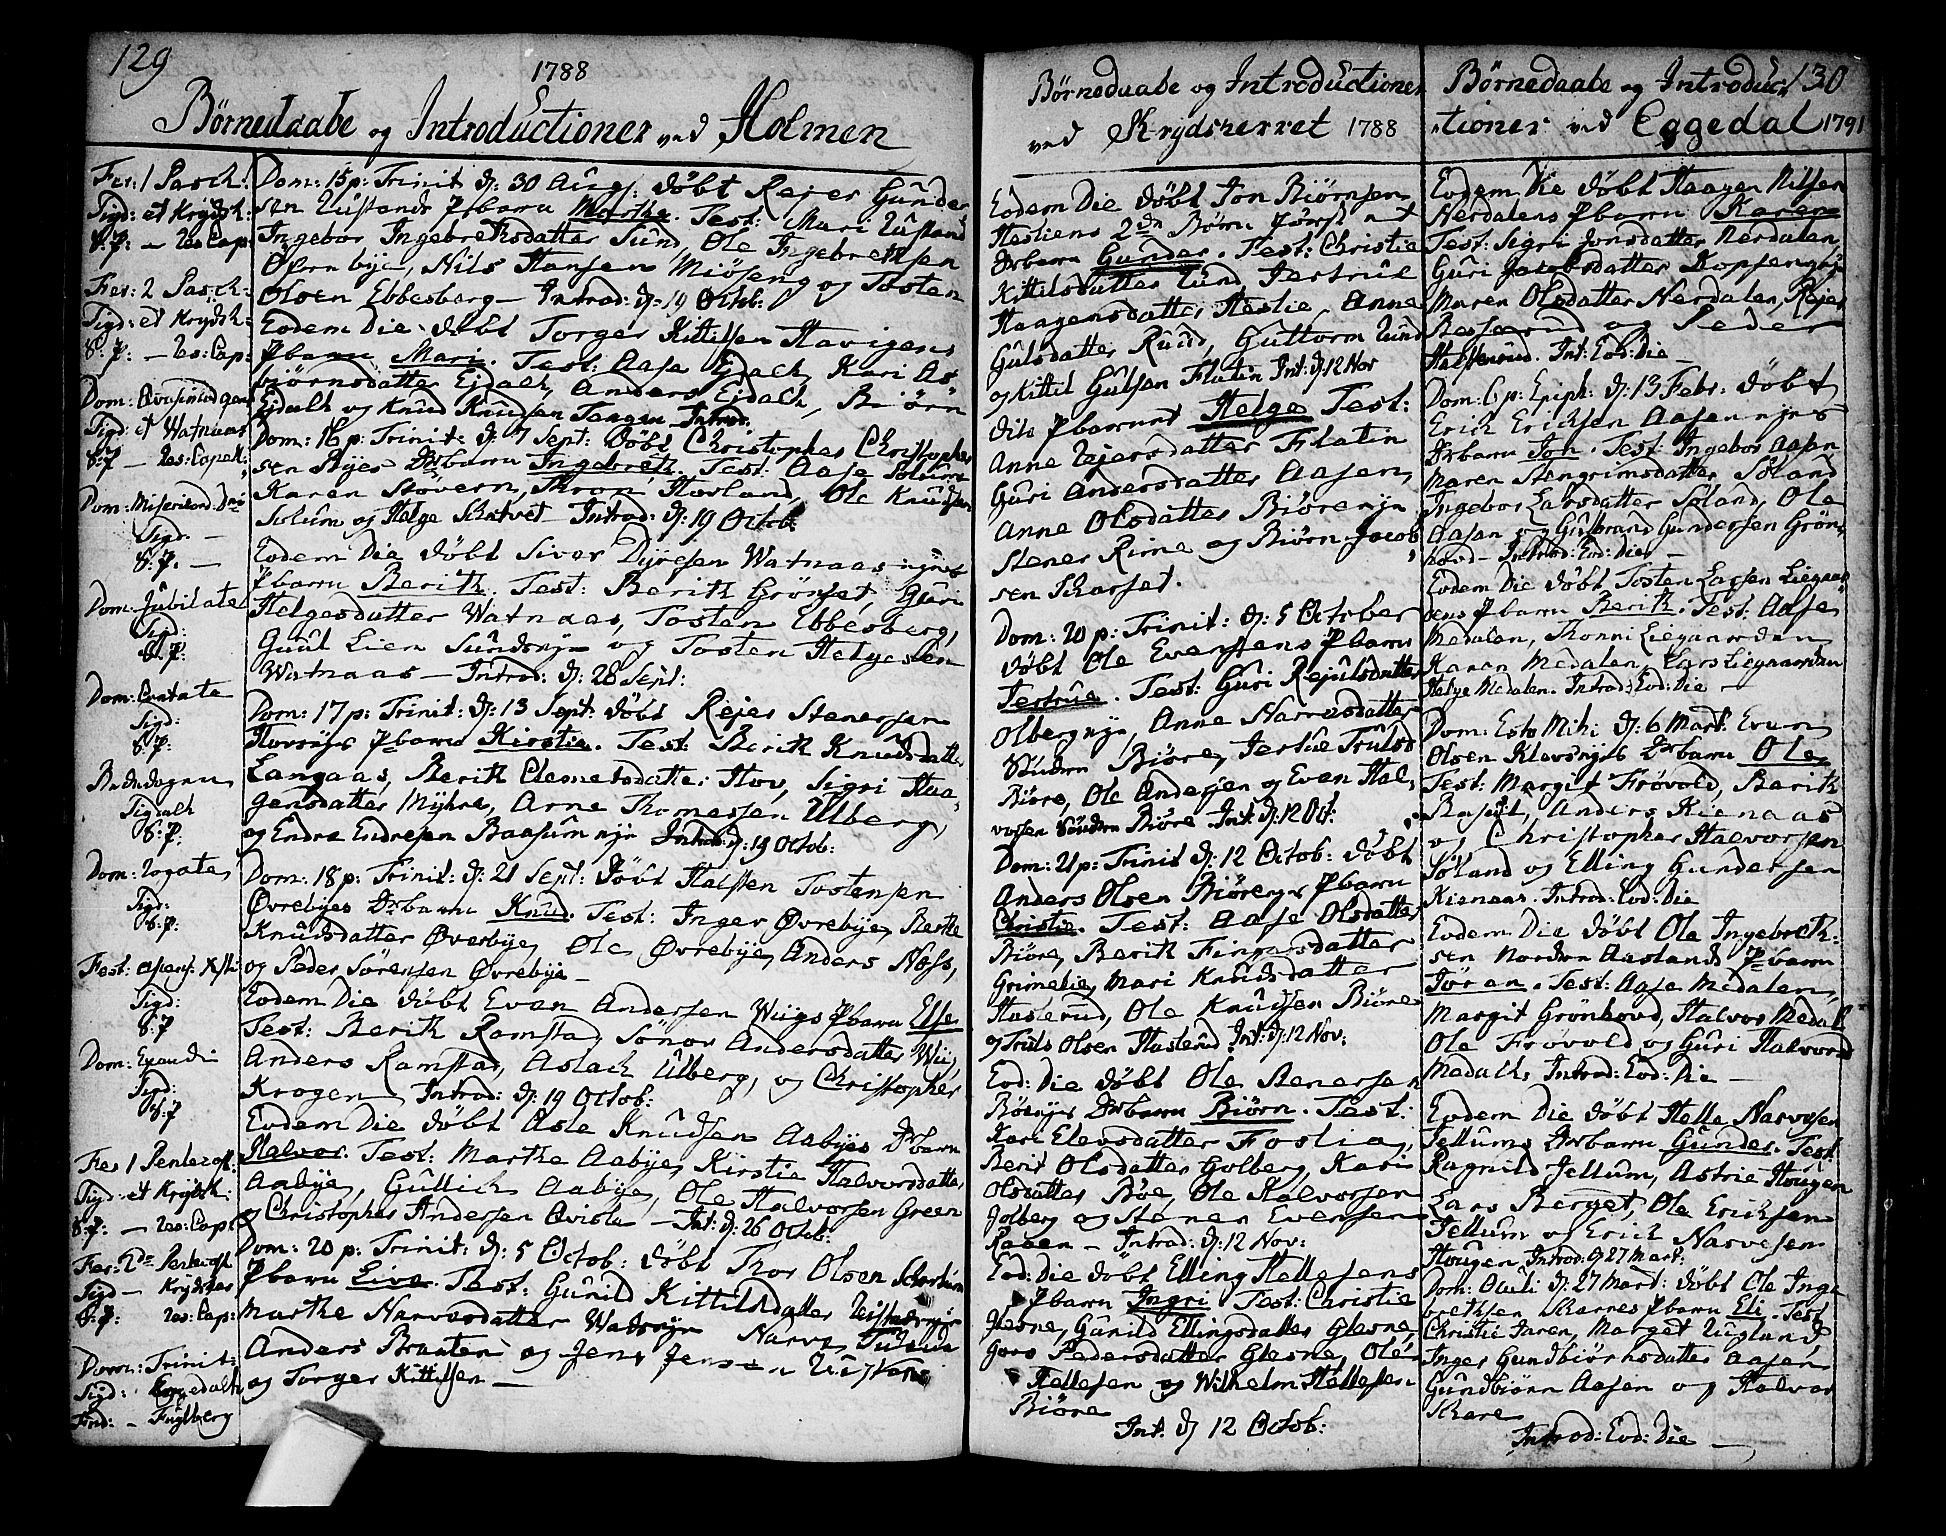 129
1788
Børnedaabe og Introductioner ved Holmen
Fer: 1 Pasch:
Sigd: et Krydsh:
8: 7: — Res: Cap:
Fer: 2 Pasch:
Sigd: et Krydsh:
8: 7: — Res: Cap:
Dom:
Sigd: et Watnaas
8: 7 — Res: Capell:
Dom: Misericord: Dni
Sigd. —
8: 7. —
Dom: Jubilate
Sigd:
8: 7.
Dom: Cantate
Sigd:
8: 7:
Bededagen
Sigdalt
8: 7.
Dom: Rogate
Sigd:
8: 7:
Fest:
Sigd:
8: 7
Dom: Exaudi
Sigd:
8: 7
Fer 1 Pentecost:
Sigd: et Krydsh:
8: 7: — Res: Capl
Fer: 2de Pentecost
Sigd — Krydshes
8: 7: Res: Cap:
Dom: Trinit:
Sigd: Eggedalh
Fuglberg
Dom: 15 p: Trinit d: 30 Aug: døbt Rejer Gunder
sen Ustands Pbarn Marthe. Test: Mari Ustand
Ingebor Ingebrethsdatter Sund, Ole Ingebrethsen
Øfrebye, Nils Hansen Miøseng og Tosten
Olsen Ebbesberg — Introd: d: 19 Octob:
Eodem Die døbt Torger Kittilsen Havigens
Pbarn Mari. Test: Aase Ejdalh, Kari As
biørnsdatter Ejdalh, Anders Ejdalh, Biørn
Ejdalh og Knud Knudsen Tangen Introd.
Dom: 16 p: Trinit: d: 7 Sept: Døbt Christopher Christopher
sen Byes Drbarn Ingebreth. Test: Aase Solum
Karen Støvern, Thron Hovland, Ole Knudsen
Solum og Helge — Introd: d: 19 Octob:
Eodem Die døbt Siver Dyresen Watnaas nyes
Pbarn Berith. Test: Berith Grønset, Guri
Helgesdatter Watnaas, Tosten Ebbesberg,
Guul Lien Sundsnye og Tosten Helgesen
Watnaas — Introd: d: 28 Sept:
Dom: 17 p: Trinit: d: 13 Sept: døbt Rejer Stenersen
Pbarn Kirstie. Test: Berith Knudsdatter
Langaas, Berith Clemetsdatter Hov, Sigri Haa-
gensdatter Myhre, Arne Thomessen Ulberg,
og Endre Endresen Baasum nye Introd: d: 19 Octob:
Dom: 18 p: Trinit: d: 21 Sept: Døbt Halsten Tostensen
Øvrebyes Drbarn Knud. Test: Inger Øvrebye, Berthe
Knudsdatter Øverbye, Ole Øvrebye, Anders Noss,
og Peder Sørensen Øvrebye —
Eodem Die døbt Even Andersen Wiigs Pbarn Else
Test: Berith Ramstad, Sønov Andersdatter Wiig
Anders Ramstad, Aslach Ulberg, og Christopher
Krogen Introd: d: 19 Octob:
Eodem Die døbt Asle Knudsen Aabyes Drbarn
Halvor. Test: Marthe Aabye, Kirstie Halvorsdatter
Aabye, Gullich Aabye, Ole Halvorsen Green
og Christopher Andersen Qvisle — Int: d: 26 Octob:
Dom: 20 p: Trinit: d: 5 Octob: døbt Thor Olsen
Pbarn Live. Test: Gunild Kittilsdatter
Marthe Narvesdatter Watsnye Narve
Anders Braaten og Jens Jensen Ustand
og Torger Kittilsen —
Børnedaabe og Introductioner
ved Krydsherret 1788
Eodem Die døbt Jon Biørnsen
Hesliens 2de Børn først et
Drbarn Gunder. Test: Christie
Kittilsdatter Lund, Jertrue
Haagensdatter Heslie, Anne
Gulsdatter Ruud, Guttorm Lund
og Kittil Gulsen Flatin Int: d: 12 Nov
dito Pbarnet Helge Test:
Anne Rejersdatter Flatin
Guri Andersdatter Aasen,
Anne Olsdatter Biøre nye
Stener Rime og Biørn Jacob
sen Skarset.
Dom: 20 p: Trinit: d: 5 October
døbt Ole Evensens Pbarn
Jertrue. Test: Guri Rejulsdatter
Olberg nye, Anne Narvesdatter
Søndre Biøre, Jertrue Truls
Biøre, Ole Andersen og Even Hal-
vorsen Søndre Biøre Int: d: 12 Oct:
Dom: 21 p: Trinit d: 12 Octob: døbt
Anders Olsen Biørenye Pbarn
Christie. Test: Aase Olsdatter
Biøre, Berith Fingersdatter
Grimelie, Mari Knudsdatter
Haslerud, Ole Knudsen Biøre
og Truls Olsen Haslerud. Int: d: 12 Nov:
Eod: Die døbt Ole Stenersen
Drbarn Biørn. Test:
Kari Elevsdatter Foslie,
Berit Olsdatter Golberg, Kari
Olsdatter Bøe, Ole Halvorsen
Golberg og Stener Evensen
Raaen — Introd: d: 12 Nov:
Eod: Die døbt Elling Hellesens
Pbarn Ingri. Test: Christie
Glesne, Gunild Ellingsdatter Glesne,
Goro Pedersdatter Glesne, Ole
Hellesen og Wilhelm Hellesen
Biøre
Int. d 12 Octob:
Børnedaabe og Introduc 130
tioner ved Eggedal 1791
Eodem Die døbt Haagen Nilsen
Nerdalens Pbarn Karen
Test: Sigri Jonsdatter Nerdalen,
Guri Jacobsdatter
Maren Olsdatter Nerdalen, Rejer
og Peder
Int: Eod: Die —
Dom: 6 p: Epiph: d: 13 Febr: døbt
Erich Erichsen Aasen nyes
Drbarn Jon. Test: Ingebor Aasen
Maren Stengrimsdatter Søland
Ingebor Larsdatter Søland, Ole
Aasen og Gulbrand Gundersen Grøn
hovd — Introd: Eod: Die —
Eodem Die døbt Tosten Larsen Liegaar
dens Pbarn Berith. Test: Aase
Medalen, Thonni Liegaarden
Karen Medalen, Lars Liegaarden
Helge Medalen. Introd: Eod: Die —
Dom: Esto Mihi d: 6 Mart: Even
Olsen Drbarn Ole
Test: Margit Frøvold, Berith
Anders Kienaas
og Christopher Halvorsen
Søland og Elling Gundersen
Kienaas. Introd: Eod: Die
Eodem Die døbt Ole Ingebreth-
sen Nordre Aaslands Pbarn
Jøran. Test: Aase Medalen,
Margit Grønhovd, Halvor Medal
Ole Frøvold og Guri Halvorsd
Medalh. Introd: Eod: Die —
Eodem Die døbt Helle Narvesen
Tellums Drbarn Gunder. Test:
Ragnild Jellum, Astrie Hougen
Lars Berget, Ole Erichsen
Jellum og Erich Narvesen
Hougen Introd: d 27 Mart:
Dom: Oculi d: 27 Mart: døbt Ole Inge
brethsen Skares Pbarn Eli. Test
Christie Juren, Marget Ugland
Inger Gundbiørnsdatter Aasen
Gundbiørn Aasen og Halvor
Skare
Introd: Eod: Die —